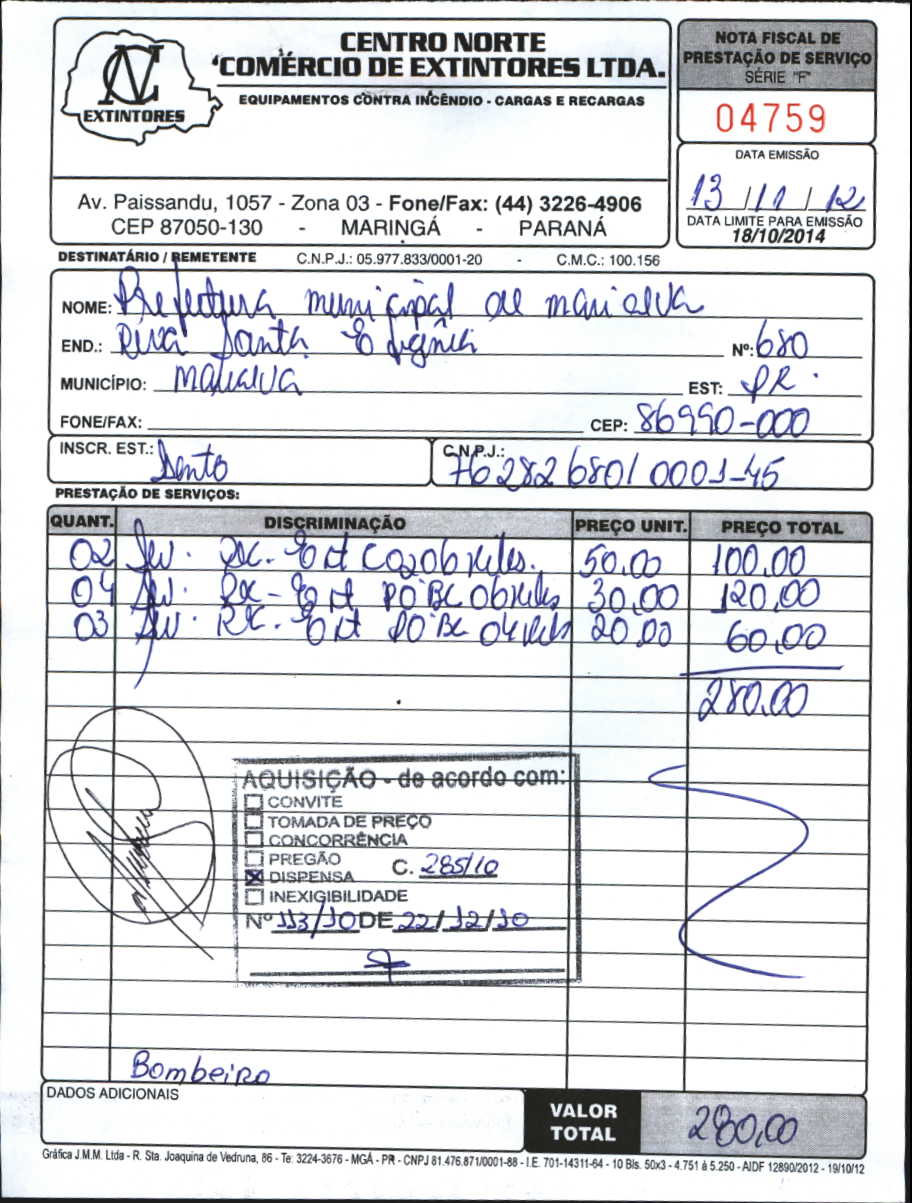 CENTRO NORTE
COMÉRCIO DE EXTINTORES LTDA.
EQUIPAMENTOS CONTRA INCÊNDIO - CARGAS E RECARGAS
NC
EXTINTORES
Av. Paissandu, 1057 - Zona 03 - Fone/Fax: (44) 3226-4906
CEP 87050-130 - MARINGÁ - PARANÁ
NOTA FISCAL DE
PRESTAÇÃO DE SERVIÇO
SÉRIE "F"
04759
DATA EMISSÃO
13 / 11 / 12
DATA LIMITE PARA EMISSÃO
18/10/2014
DESTINATÁRIO / REMETENTE C.N.P.J.: 05.977.833/0001-20 - C.M.C.: 100.156
NOME: Prefectura municipal de marialva
END.: Rua Santa Efigênia Nº: 680
MUNICÍPIO: Marialva EST: PR.
FONE/FAX: CEP: 86990-000
INSCR. EST.: Isento C.N.P.J.: 76282680/0001-45
PRESTAÇÃO DE SERVIÇOS:
QUANT. DISCRIMINAÇÃO PREÇO UNIT. PREÇO TOTAL
02 Ser. Rec. Ext CO2 06 Kilos. 50,00 100,00
04 Ser. Rec - Ext PO BC 06 Kilos 30,00 120,00
03 Ser. Rec. Ext PO BC 04 Kilos 20,00 60,00
280,00
AQUISIÇÃO - de acordo com:
CONVITE
TOMADA DE PREÇO
CONCORRÊNCIA
PREGÃO C. 285/10
DISPENSA
INEXIGIBILIDADE
Nº 113/10 DE 22/12/10
Bombeiro
DADOS ADICIONAIS
VALOR
TOTAL 280,00
Gráfica J.M.M. Ltda - R. Sta. Joaquina de Vedruna, 86 - Te: 3224-3676 - MGÁ - PR - CNPJ 81.476.871/0001-88 - I.E. 701-14311-64 - 10 Bls. 50x3 - 4.751 à 5.250 - AIDF 12890/2012 - 19/10/12